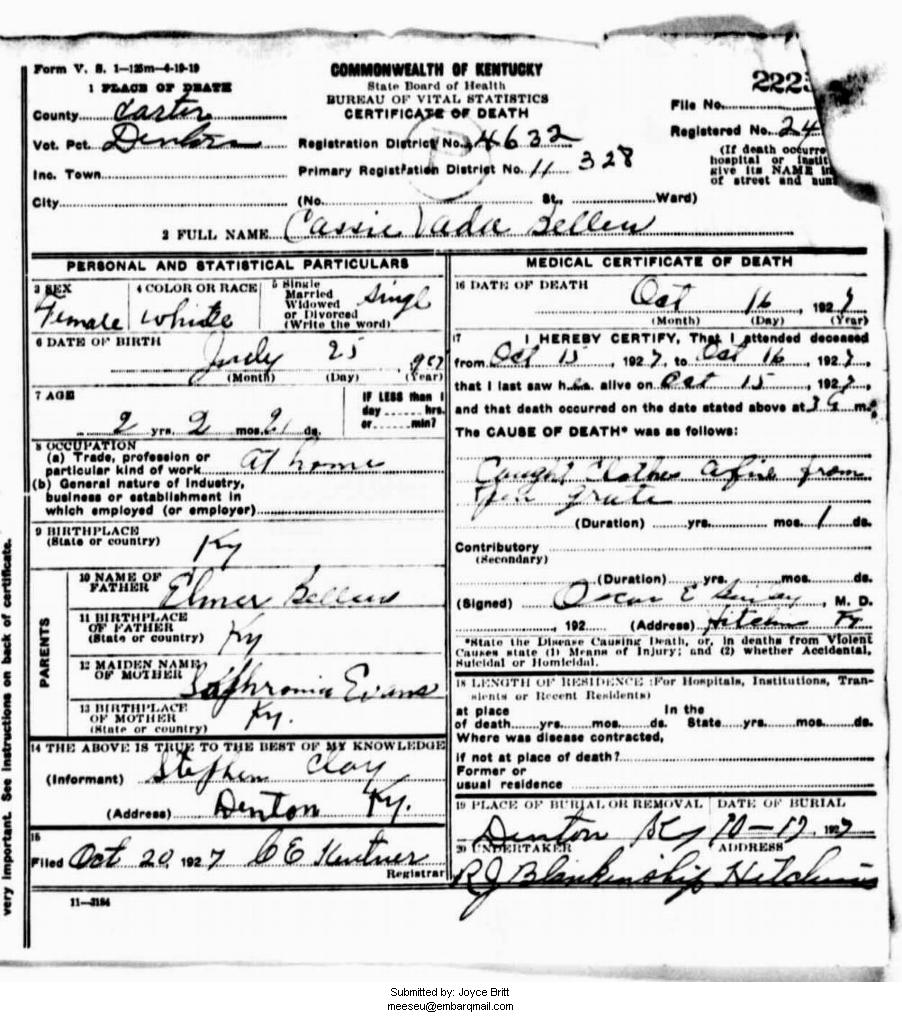 Form V. S. 1—125m—4-19-19
COMMONWEALTH OF KENTUCKY
State Board of Health
BUREAU OF VITAL STATISTICS
CERTIFICATE OF DEATH
1 PLACE OF DEATH
County Carter
Vot. Pct. Denton
Inc. Town
City
Registration District No. 4632
Primary Registration District No. 11 328
(No. St., Ward)
File No. 222
Registered No. 24
(If death occurre
hospital or instit
give its NAME in
of street and num
2 FULL NAME Cassie Vada Bellew
PERSONAL AND STATISTICAL PARTICULARS
3 SEX
Female
4 COLOR OR RACE
White
5 Single
Married
Widowed
or Divorced
(Write the word)
Singl
6 DATE OF BIRTH
25
(Month) (Day) (Year)
7 AGE
2 yrs. 2 mos. 21 ds.
IF LESS than 1
day hrs.
or min?
8 OCCUPATION
(a) Trade, profession or
particular kind of work at home
(b) General nature of Industry,
business or establishment in
which employed (or employer)
9 BIRTHPLACE
(State or country)
Ky
PARENTS
10 NAME OF
FATHER
Elmer Bellew
11 BIRTHPLACE
OF FATHER
(State or country)
Ky
12 MAIDEN NAME
OF MOTHER
Saphronia Evans
13 BIRTHPLACE
OF MOTHER
(State or country)
Ky.
14 THE ABOVE IS TRUE TO THE BEST OF MY KNOWLEDGE
(Informant) Stephen Clay
(Address) Denton Ky.
15
Filed Oct 20, 1927 C E
Registrar
11—3184
MEDICAL CERTIFICATE OF DEATH
16 DATE OF DEATH
Oct 16, 1927
(Month) (Day) (Year)
17 I HEREBY CERTIFY, That I attended deceased
from Oct 15, 1927, to Oct 16, 1927,
that I last saw h alive on Oct 15, 1927,
and that death occurred on the date stated above at 3 m.
The CAUSE OF DEATH* was as follows:
Caught Clothes afire from
grate
(Duration) yrs. mos. 1 ds.
Contributory
(Secondary)
(Duration) yrs. mos. ds.
(Signed) Oscar E , M. D.
, 192 (Address) Hitchins Ky
*State the Disease Causing Death, or, in deaths from Violent
Causes state (1) Means of Injury; and (2) whether Accidental,
Suicidal or Homicidal.
18 LENGTH OF RESIDENCE (For Hospitals, Institutions, Tran-
sients or Recent Residents)
at place In the
of death yrs. mos. ds. State yrs. mos. ds.
Where was disease contracted,
if not at place of death?
Former or
usual residence
19 PLACE OF BURIAL OR REMOVAL
Denton Ky
DATE OF BURIAL
10-17 1927
20 UNDERTAKER
R J Blankinship
ADDRESS
Hitchins
very important. See instructions on back of certificate.
Submitted by: Joyce Britt
meeseu@embarqmail.com